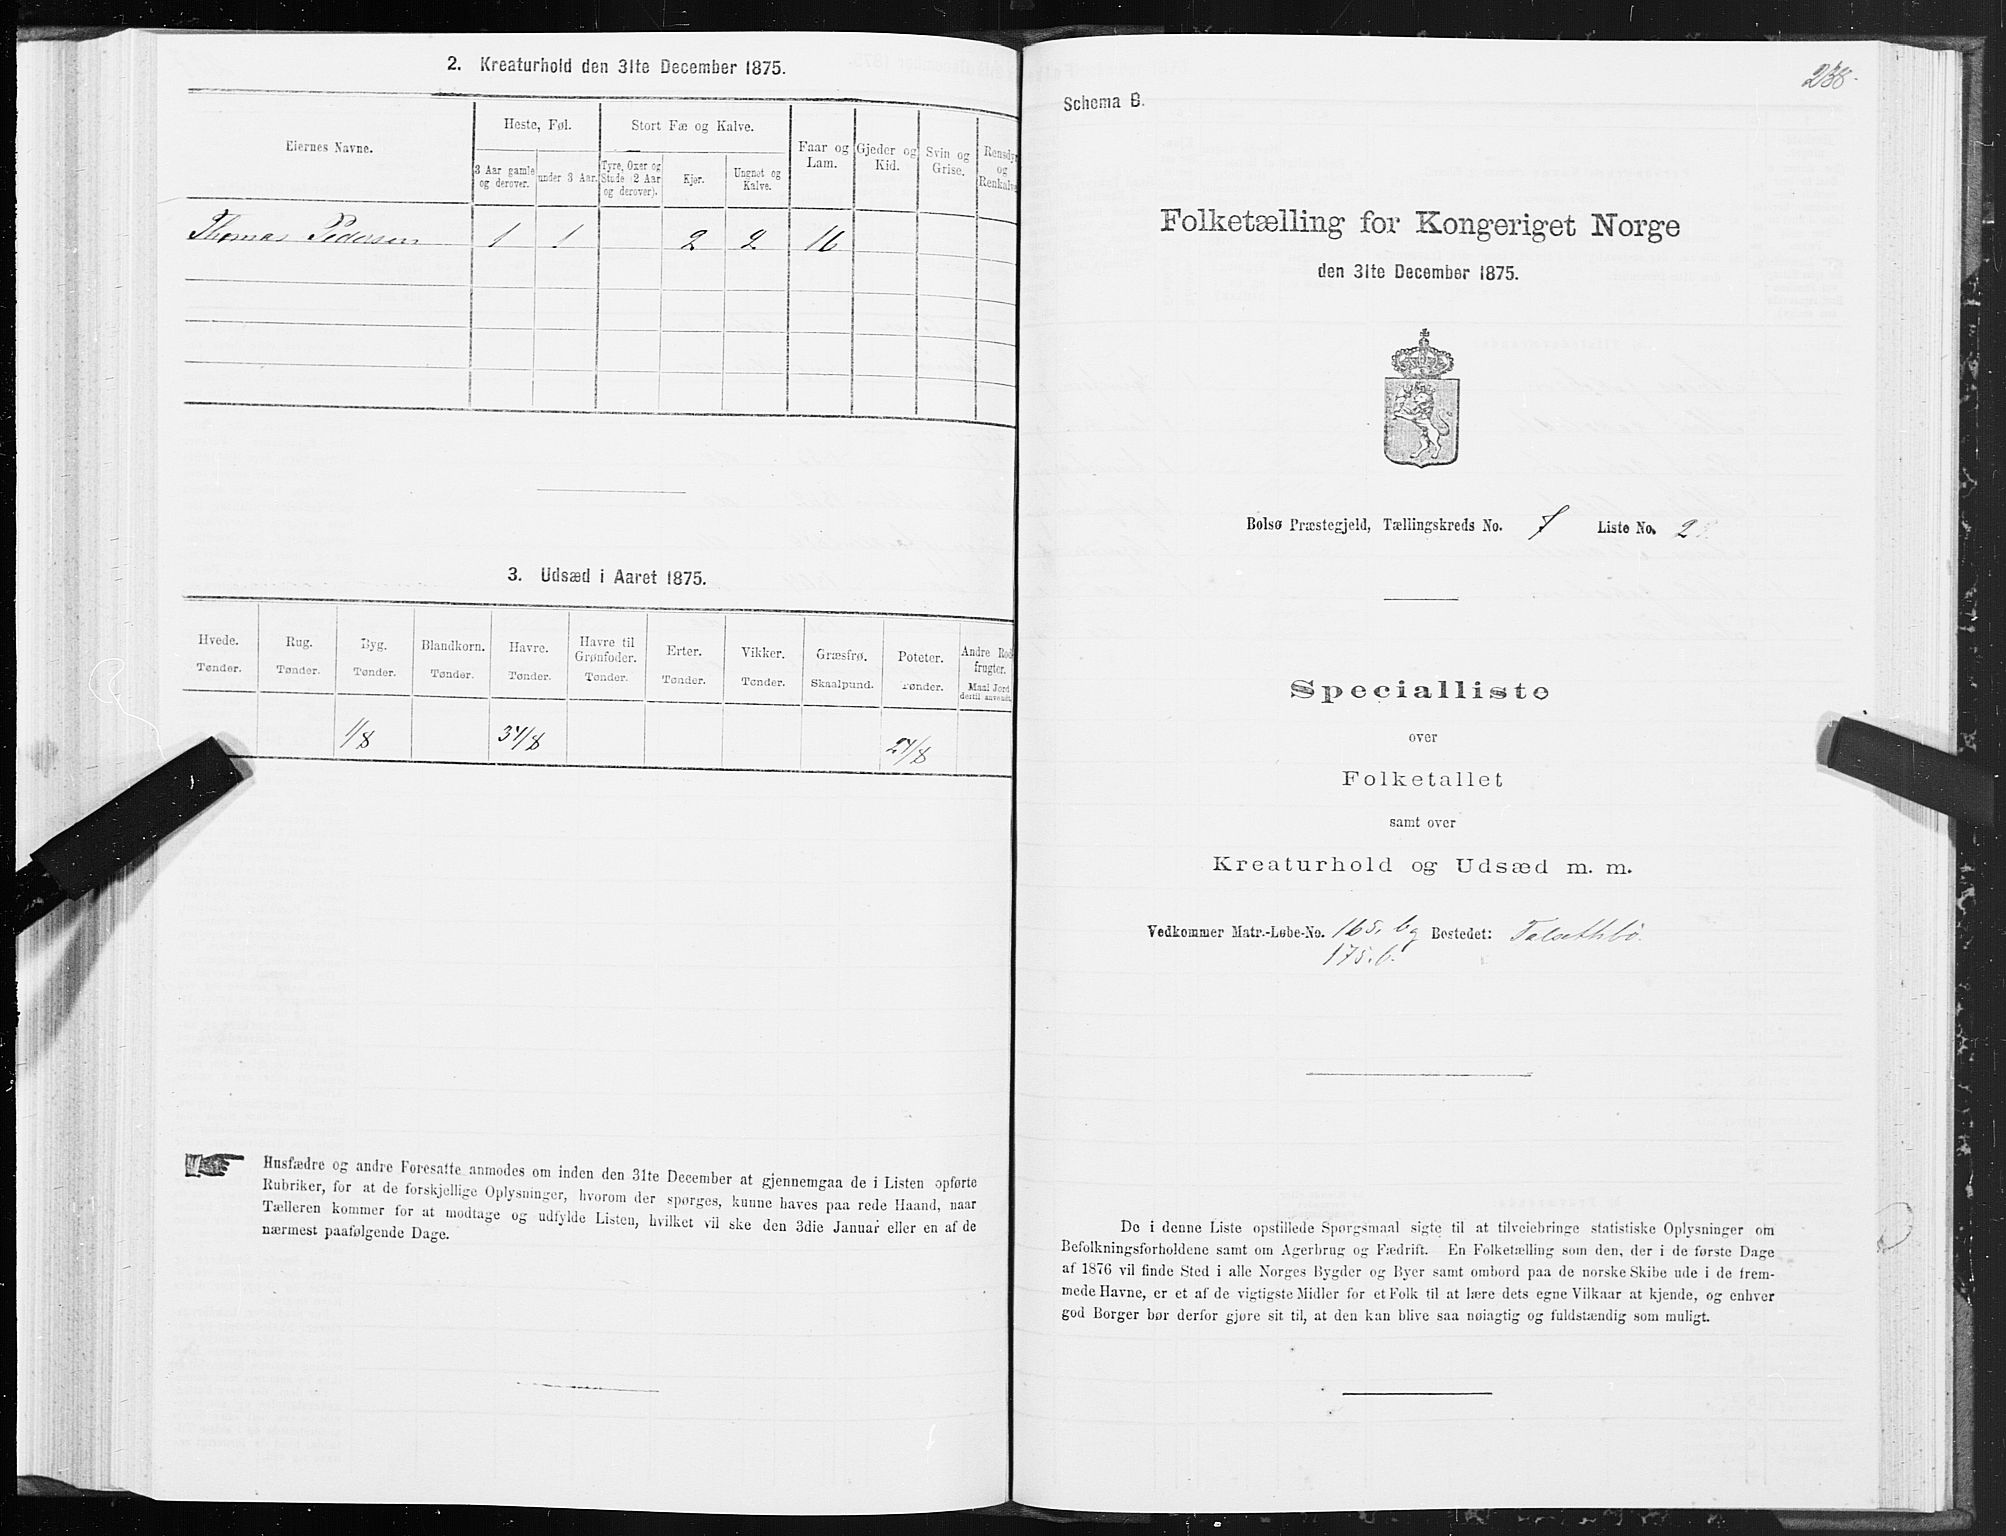 2. Kreaturhold den 31te December 1875.
Eiernes Navne.
Heste, Føl.
Stort Fæ og Kalve.
Faar og Lam.
Gjeder og Kid.
Svin og Grise.
Rensdyr og Renkalve
3 Aar gamle og derover.
under 3 Aar.
Tyre, Oxer og Stude (2 Aar og derover).
Kjør.
Ungnøt og Kalve.
Thomas Pedersen 1 1 2 2 16
3. Udsæd i Aaret 1875.
Hvede. Rug. Byg. Blandkorn. Havre. Havre til Grønfoder. Erter. Vikker. Græsfrø. Poteter. Andre Rod frugter.
Tønder. Tønder. Tønder. Tønder. Tønder. Tønder. Tønder. Tønder. Skaalpund. Tønder. Maal Jord dertil anvendt.
1/8 3 4/8 2 4/8
Husfædre og andre Foresatte anmodes om inden den 31te December at gjennemgaa de i Listen opførte
Rubriker, for at de forskjellige Oplysninger, hvorom der spørges, kunne haves paa rede Haand, naar
Tælleren kommer for at modtage og udfylde Listen, hvilket vil ske den 3die Januar eller en af de
nærmest paafølgende Dage.
238.
Schema B.
Folketælling for Kongeriget Norge
den 31te December 1875.
Bolsø Præstegjeld, Tællingskreds No. 7 Liste No. 2
Specialliste
over
Folketallet
samt over
Kreaturhold og Udsæd m. m.
Vedkommer Matr.-Løbe-No. 165. b og Bostedet: Talsethbö.
175. b.
De i denne Liste opstillede Spørgsmaal sigte til at tilveiebringe statistiske Oplysninger om
Befolkningsforholdene samt om Agerbrug og Fædrift. En Folketælling som den, der i de første Dage
af 1876 vil finde Sted i alle Norges Bygder og Byer samt ombord paa de norske Skibe ude i de frem-
mede Havne, er et af de vigtigste Midler for et Folk til at lære dets egne Vilkaar at kjende, og enhver
god Borger bør derfor gjøre sit til, at den kan blive saa nøiagtig og fuldstændig som muligt.